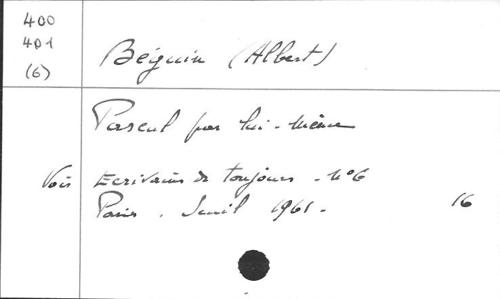 400
401
(6)
Béguin (Albert)
Pascal par lui-même
Voir Ecrivains de toujours - N°6
Paris. Seuil 1961.
16